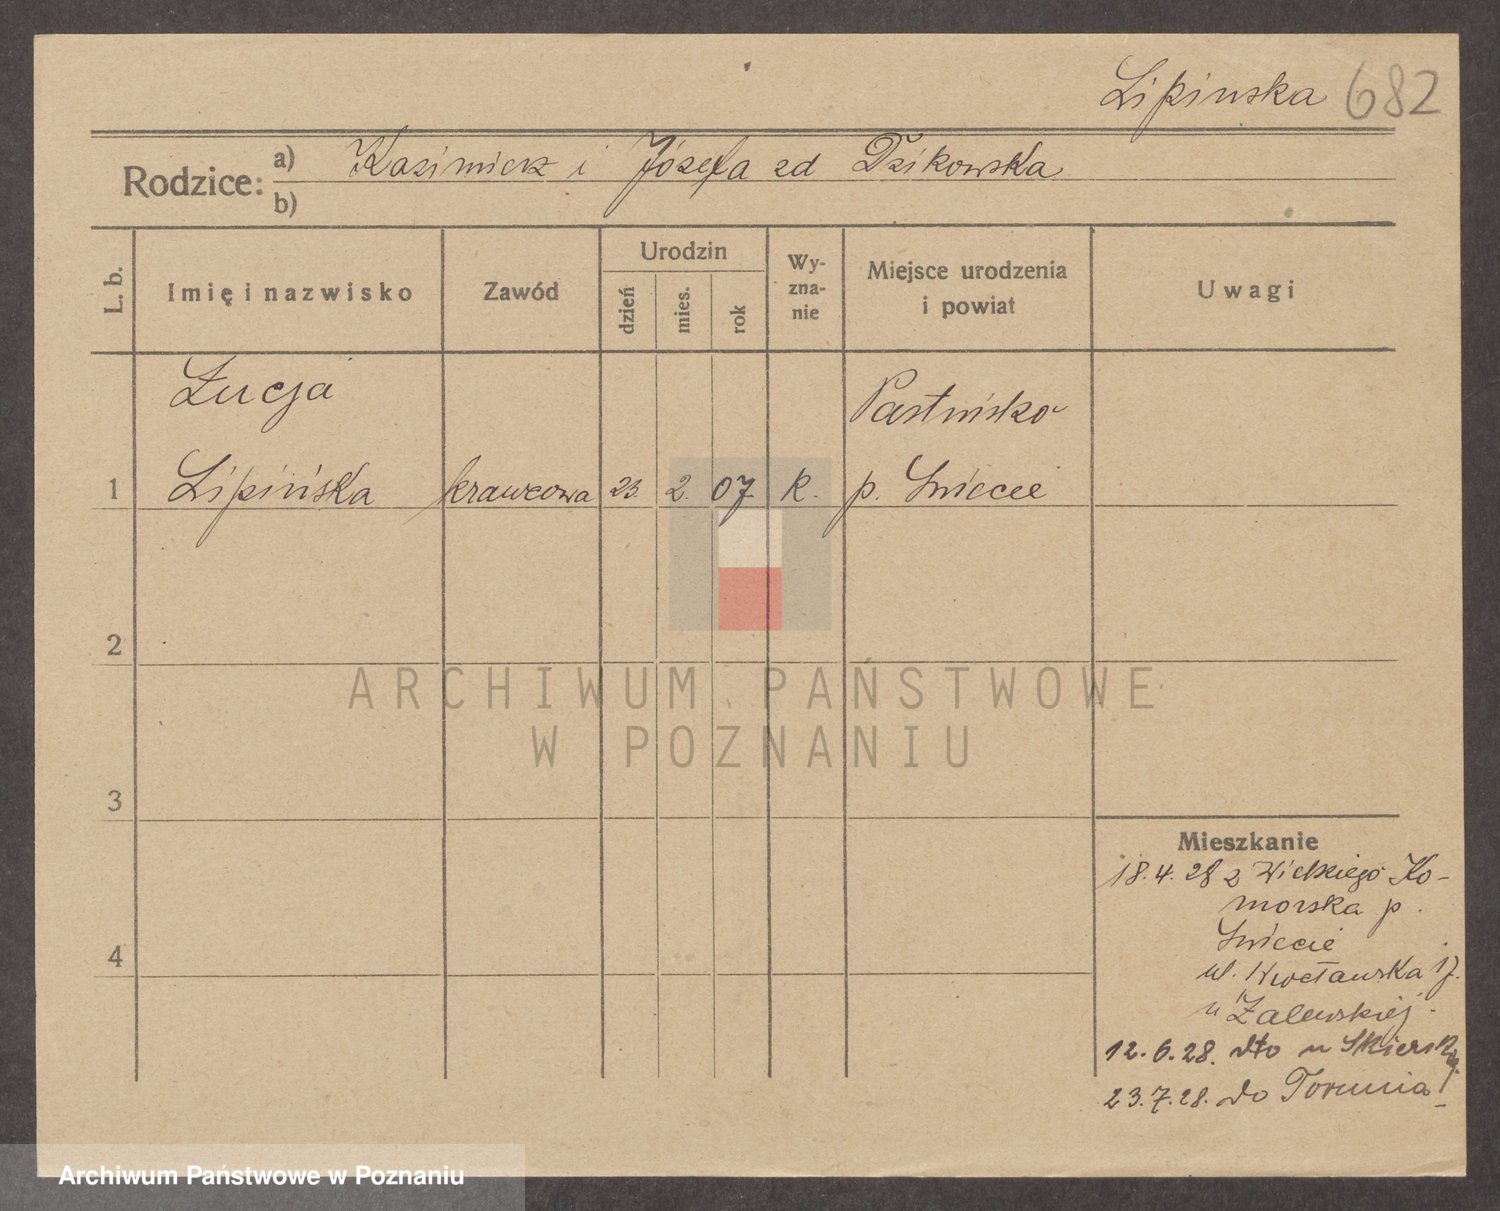 Lipinska 682
Rodzice: a) Kazimierz i Józefa zd Dzikowska
b)
L. b. Imię i nazwisko Zawód Urodzin dzień mies. rok Wy-zna-nie Miejsce urodzenia i powiat Uwagi
Łucja Pastwisko
1 Lipińska krawcowa 23. 2. 07. K. p. Świecie
2
ARCHIWUM PAŃSTWOWE
W POZNANIU
3
Mieszkanie
18.4.28 z Wielkiego Ko-
morska p.
4 Świecie
ul. Wrocławska 17.
u Zalewskiej.
12.6.28. dto u Skierskiej
23.7.28. do Torunia
Archiwum Państwowe w Poznaniu